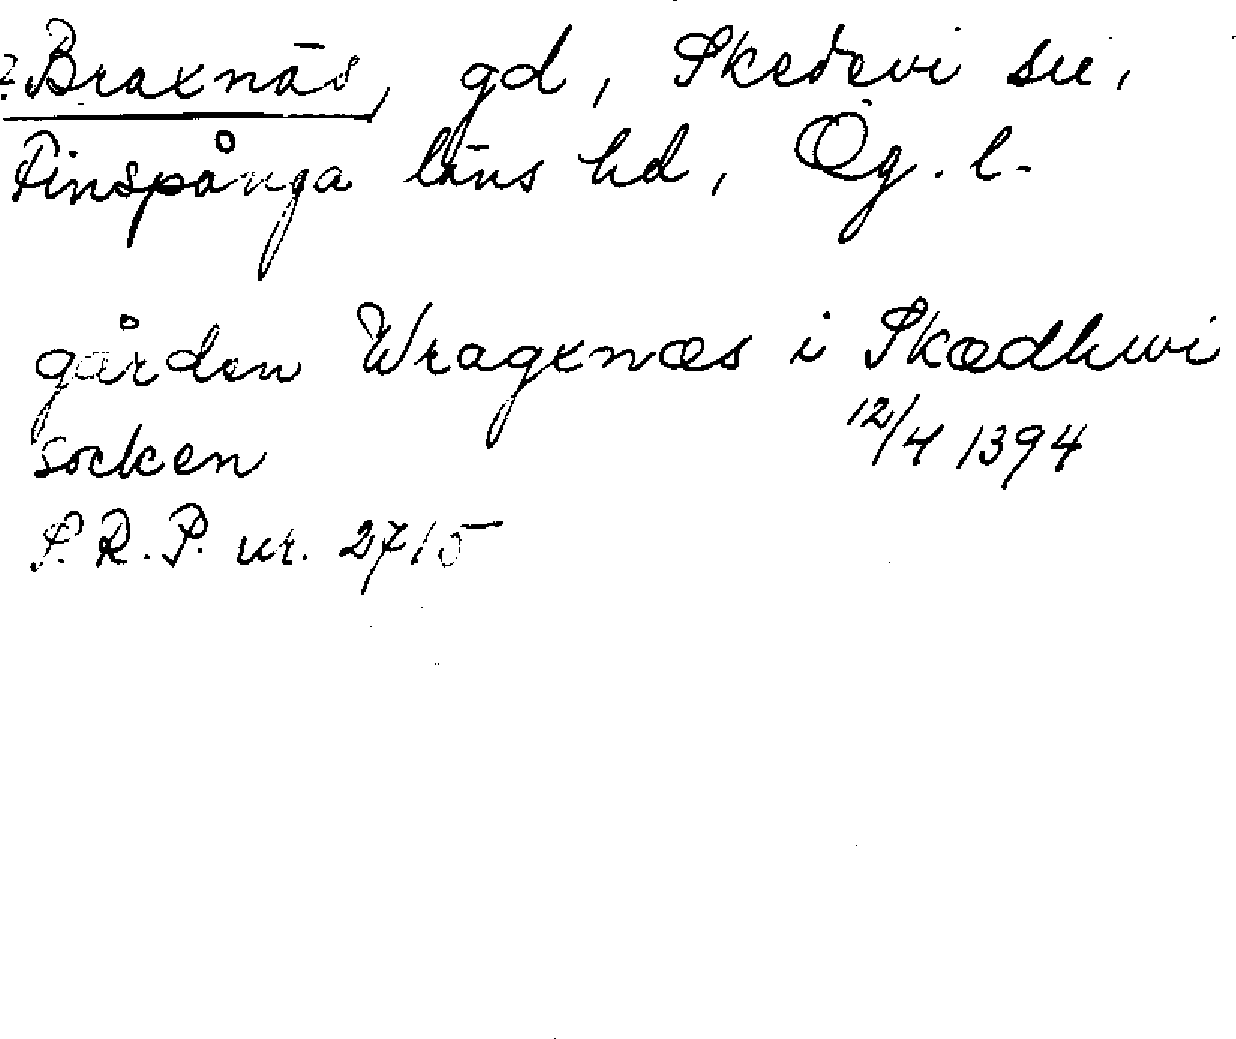 ? Braxnäs, gd, Skedevi sn,
Finspånga läns hd, Ög. l.
gården Wragxnæs i Skædhwi
socken 12/4 1394
S.R.P. nr. 2715